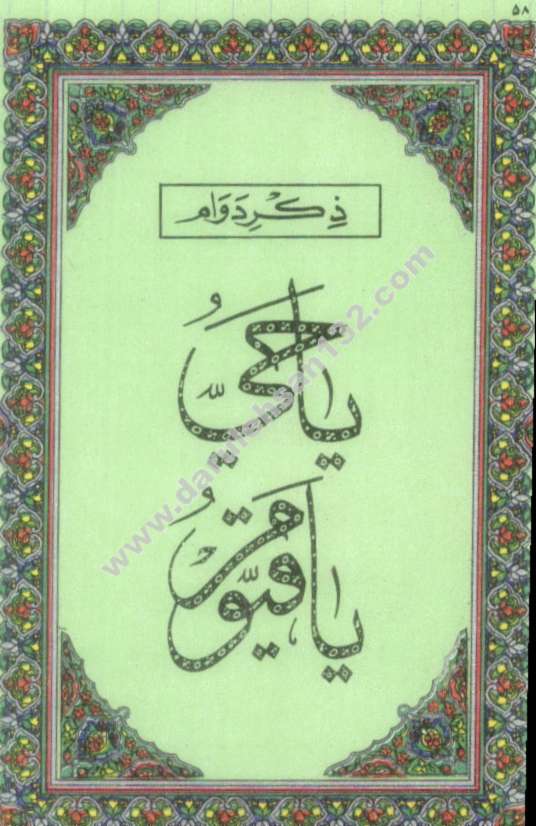 ۵۸
ذِكْرِ دَوَام
يَا حَيُّ
يَا قَيُّوْمُ
www.darulehsan132.com